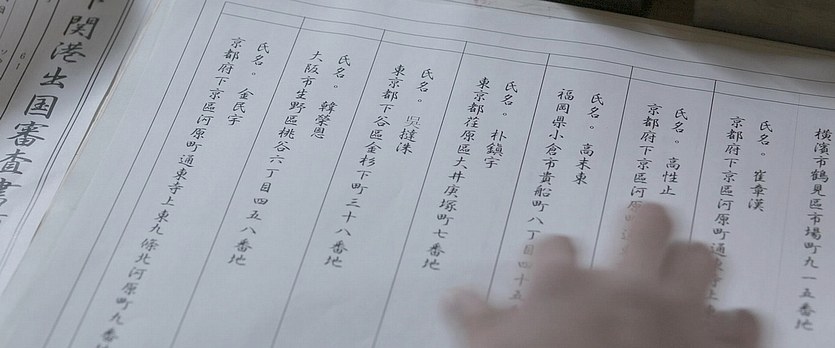 横濱市鶴見區市場町九一五番地
氏名。崔章漢
京都府下京區河原町通東寺上
氏名。高性止
京都府下京區河原町
氏名。高末東
福岡県小倉市貴船町八丁目四十五
氏名。朴鎭宇
東京都荏原區大井庚塚町七番地
氏名。吳撻洙
東京都下谷區金杉下町三十八番地
氏名。韓榮恩
大阪市生野區桃谷六丁目四五八番地
氏名。金民宇
京都府下京區河原町通東寺上東九條北河原町九番
関港出国審査書